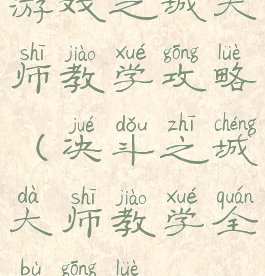 游戏之城大
shī jiào xué gōng lüè
师教学攻略
jué dǒu zhī chéng
（决斗之城
dà shī jiào xué quán
大师教学全
bù gōng lüè